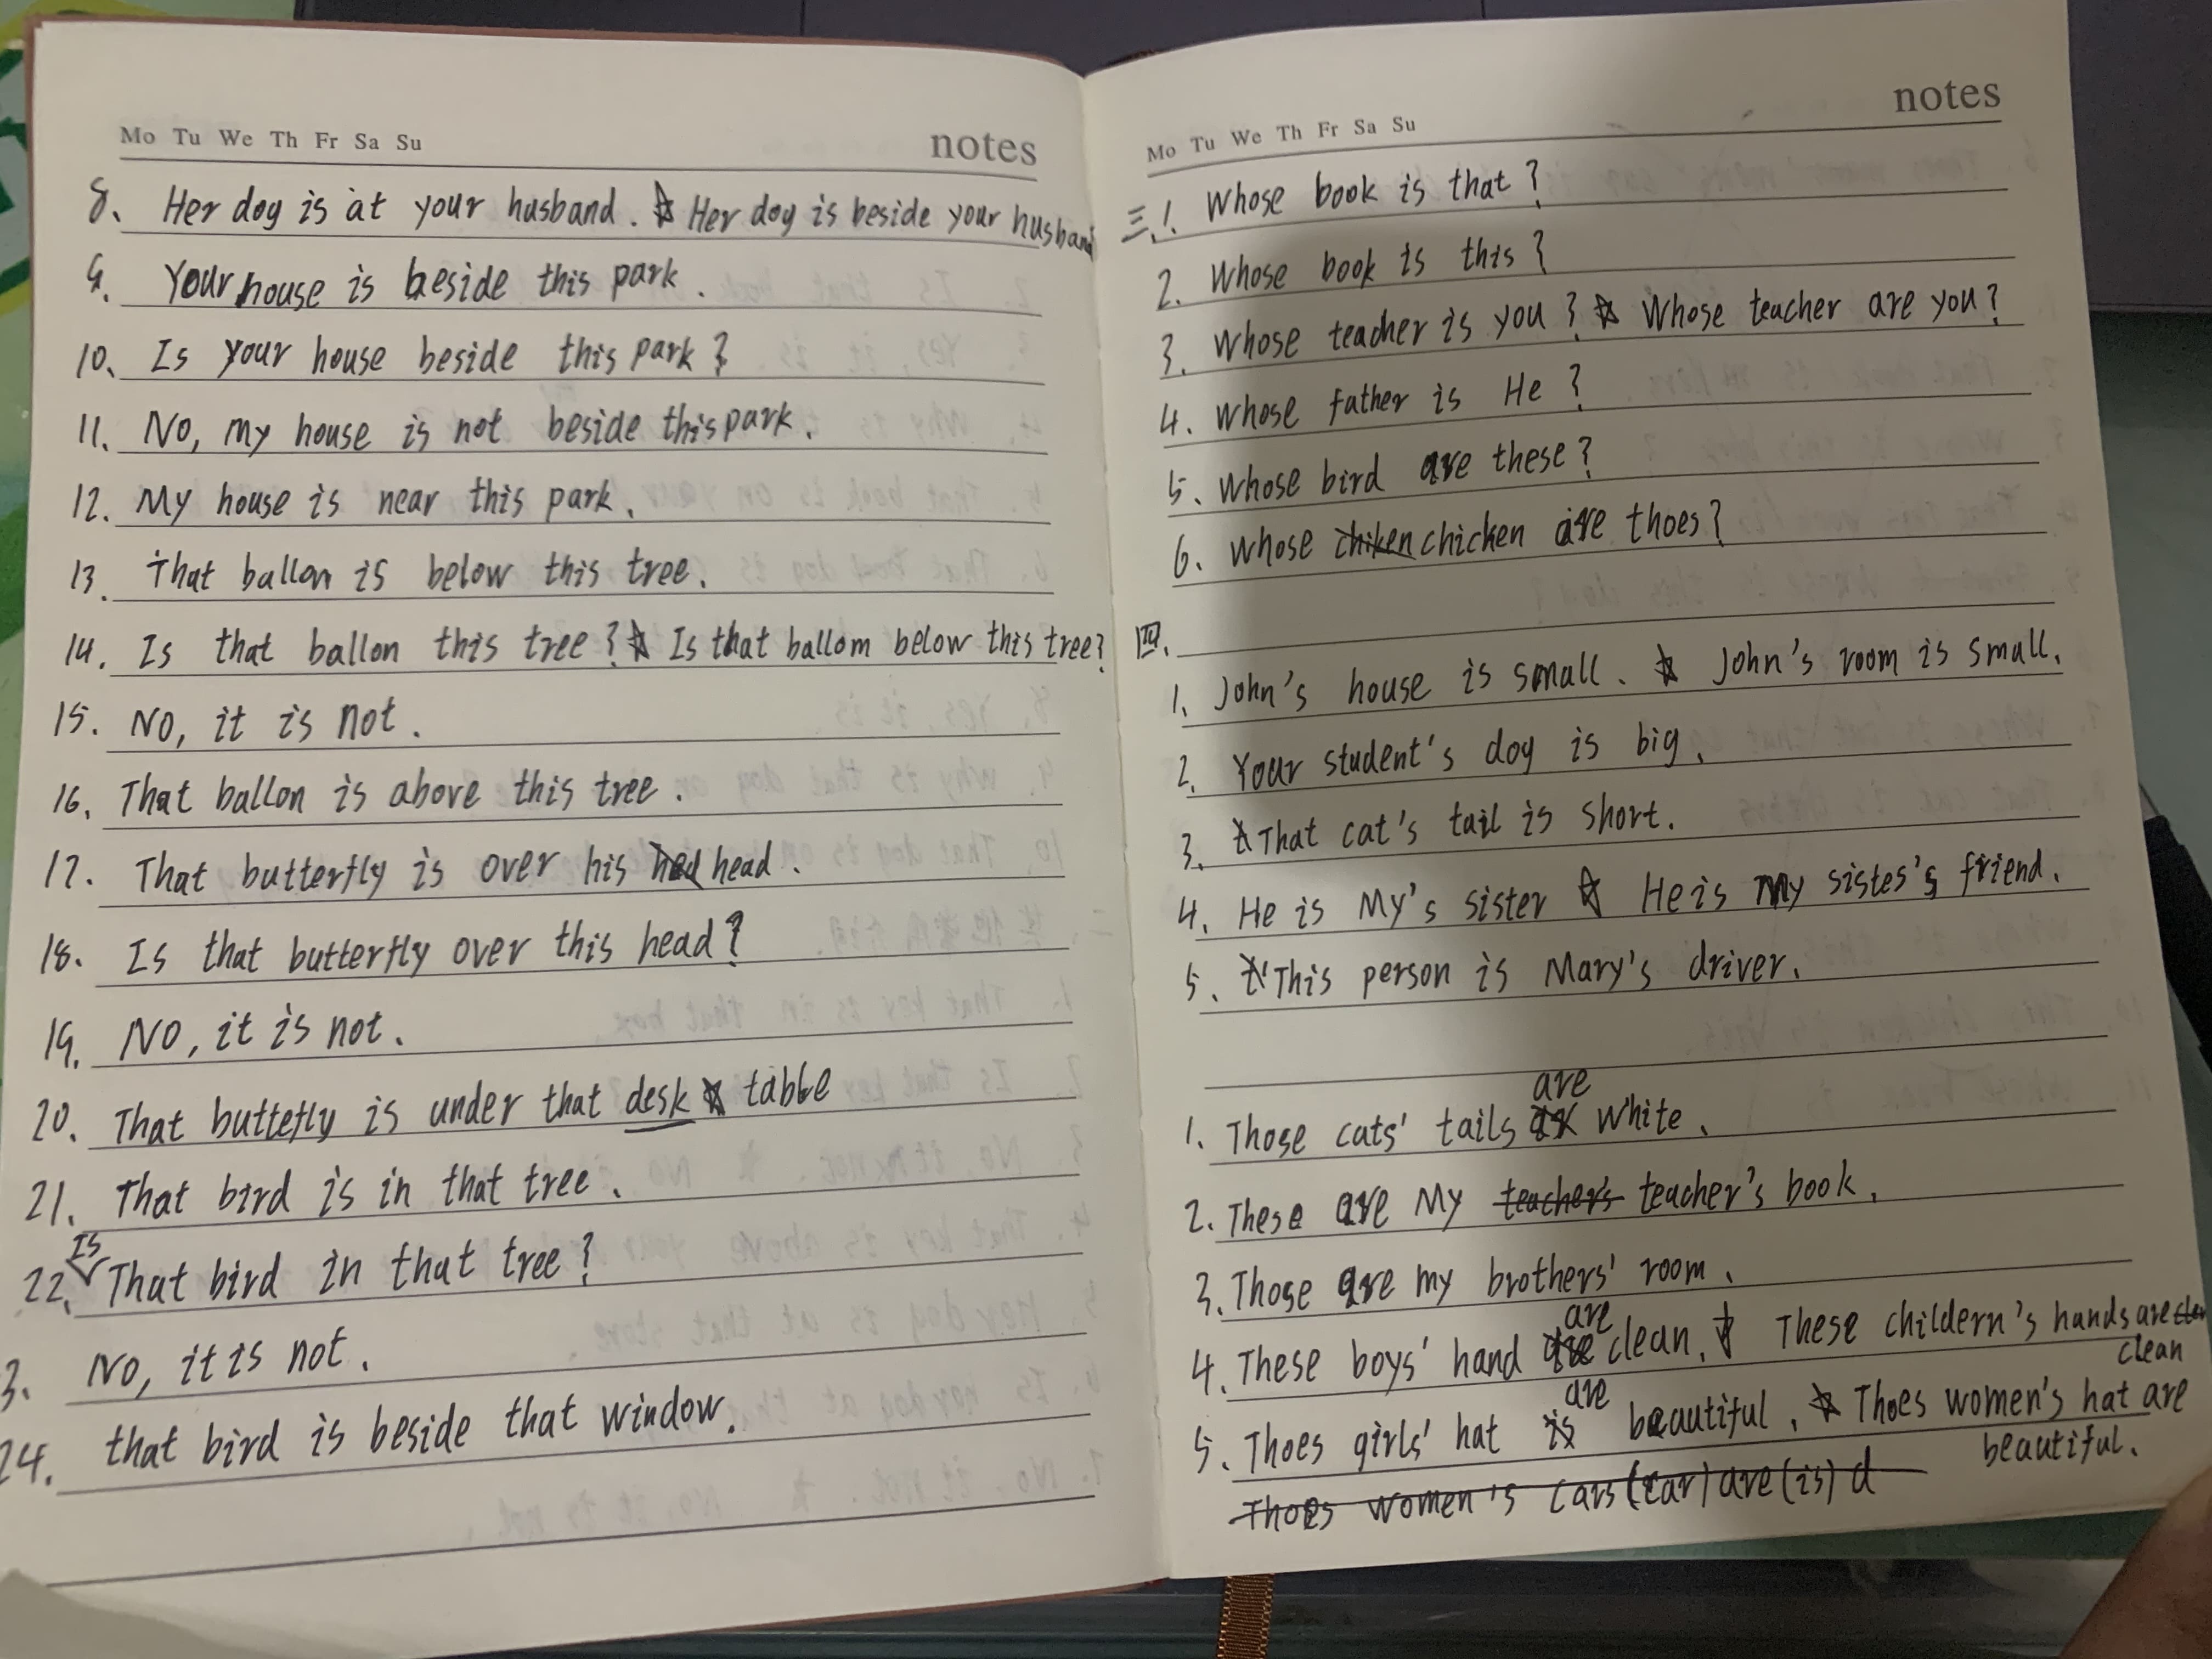 Mo Tu We Th Fr Sa Su notes
8. Her dog is at your husband. ☆ Her dog is beside your husband
9. Your house is beside this park.
10. Is your house beside this park?
11. No, my house is not beside this park.
12. My house is near this park.
13. That ballon is below this tree.
14. Is that ballon this tree? ☆ Is that ballom below this tree?
15. No, it is not.
16. That ballon is above this tree.
17. That butterfly is over his hed head.
18. Is that butterfly over this head?
19. No, it is not.
20. That buttefly is under that desk ☆ table
21. That bird is in that tree.
22. Is That bird in that tree?
3. No, it is not.
24. that bird is beside that window.
Mo Tu We Th Fr Sa Su notes
三.1. Whose book is that?
2. Whose book is this?
3. Whose teacher is you? ☆ Whose teacher are you?
4. Whose father is He?
5. Whose bird are these?
6. Whose chiken chicken are thoes?
四.
1. John's house is small. ☆ John's room is small.
2. Your student's dog is big.
3. ☆ That cat's tail is short.
4. He is My's sister ☆ He is my sistes's friend.
5. ☆ This person is Mary's driver.
are
1. Those cats' tails white.
2. These are My teacher's teacher's book.
3. Those are my brothers' room.
are
4. These boys' hand are clean. ☆ These childern's hands are
clean
are
5. Thoes girls' hat is beautiful. ☆ Thoes women's hat are
beautiful.
Thoes women's cars (car) are (is) d